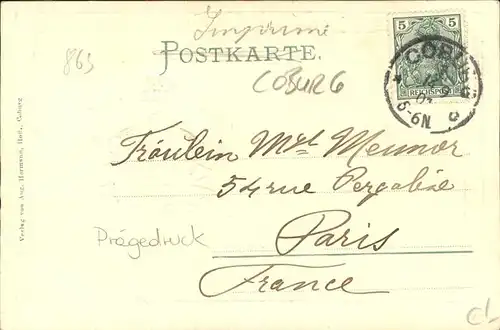 Imprimé
POSTKARTE.
863
COBURG
5 5
REICHSPOST
COBURG
6N
Verlag von Aug. Hermann, Hofl., Coburg
Fräulein Mrl. Meunor
54 rue Pergolèse
Paris
France
Prägedruck